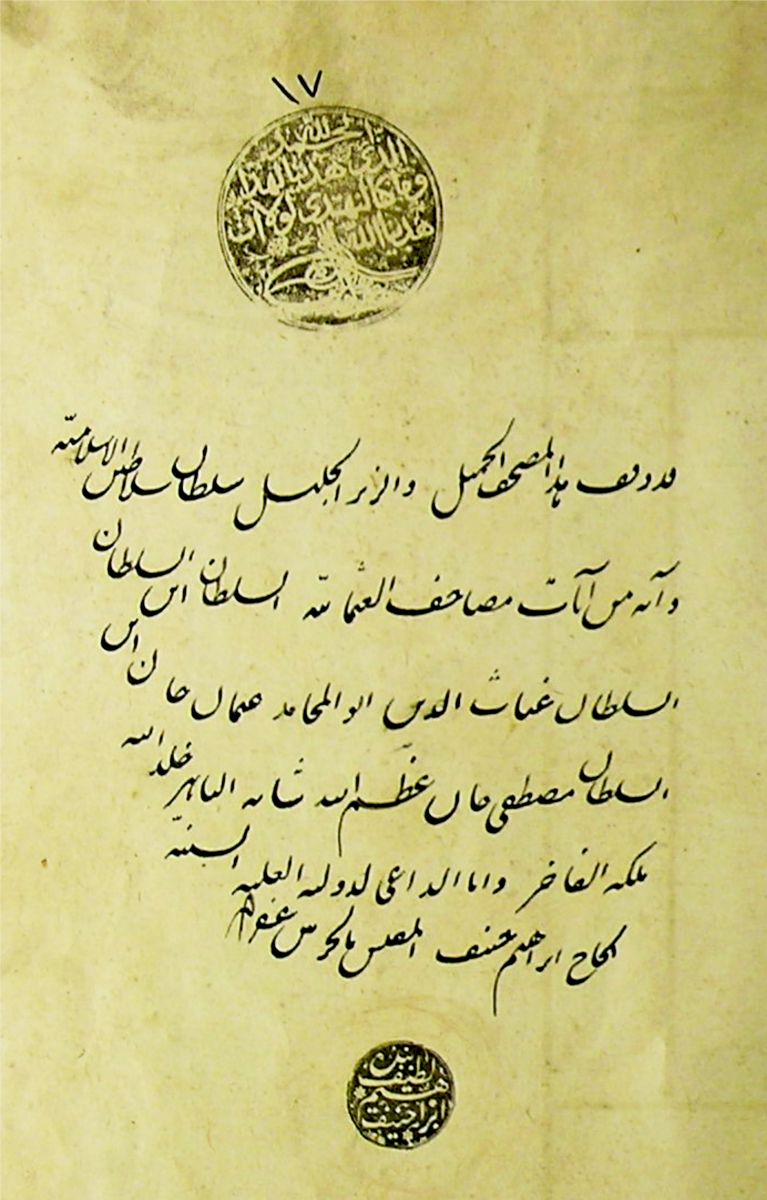 ١٧
الحمد لله
الذى هدينا لهذا
وما كنا لنهتدى لولا ان
هدينا الله
قد وقف هذا المصحف الجميل والزبر الجليل سلطان سلاطين الاسلاميه
وانه من آيات مصاحف العثمانيه السلطان ابن السلطان
السلطان غياث الدين ابو المحامد عثمان خان ابن
السلطان مصطفى خان عظّم الله شانه الباهر خلد الله
ملكه الفاخر وانا الداعى لدولته العليه السنيّه
الحاج ابراهيم حنيف المفتش بالحرمين غفر لهما
لطيف
هيم
ابرا حنيف